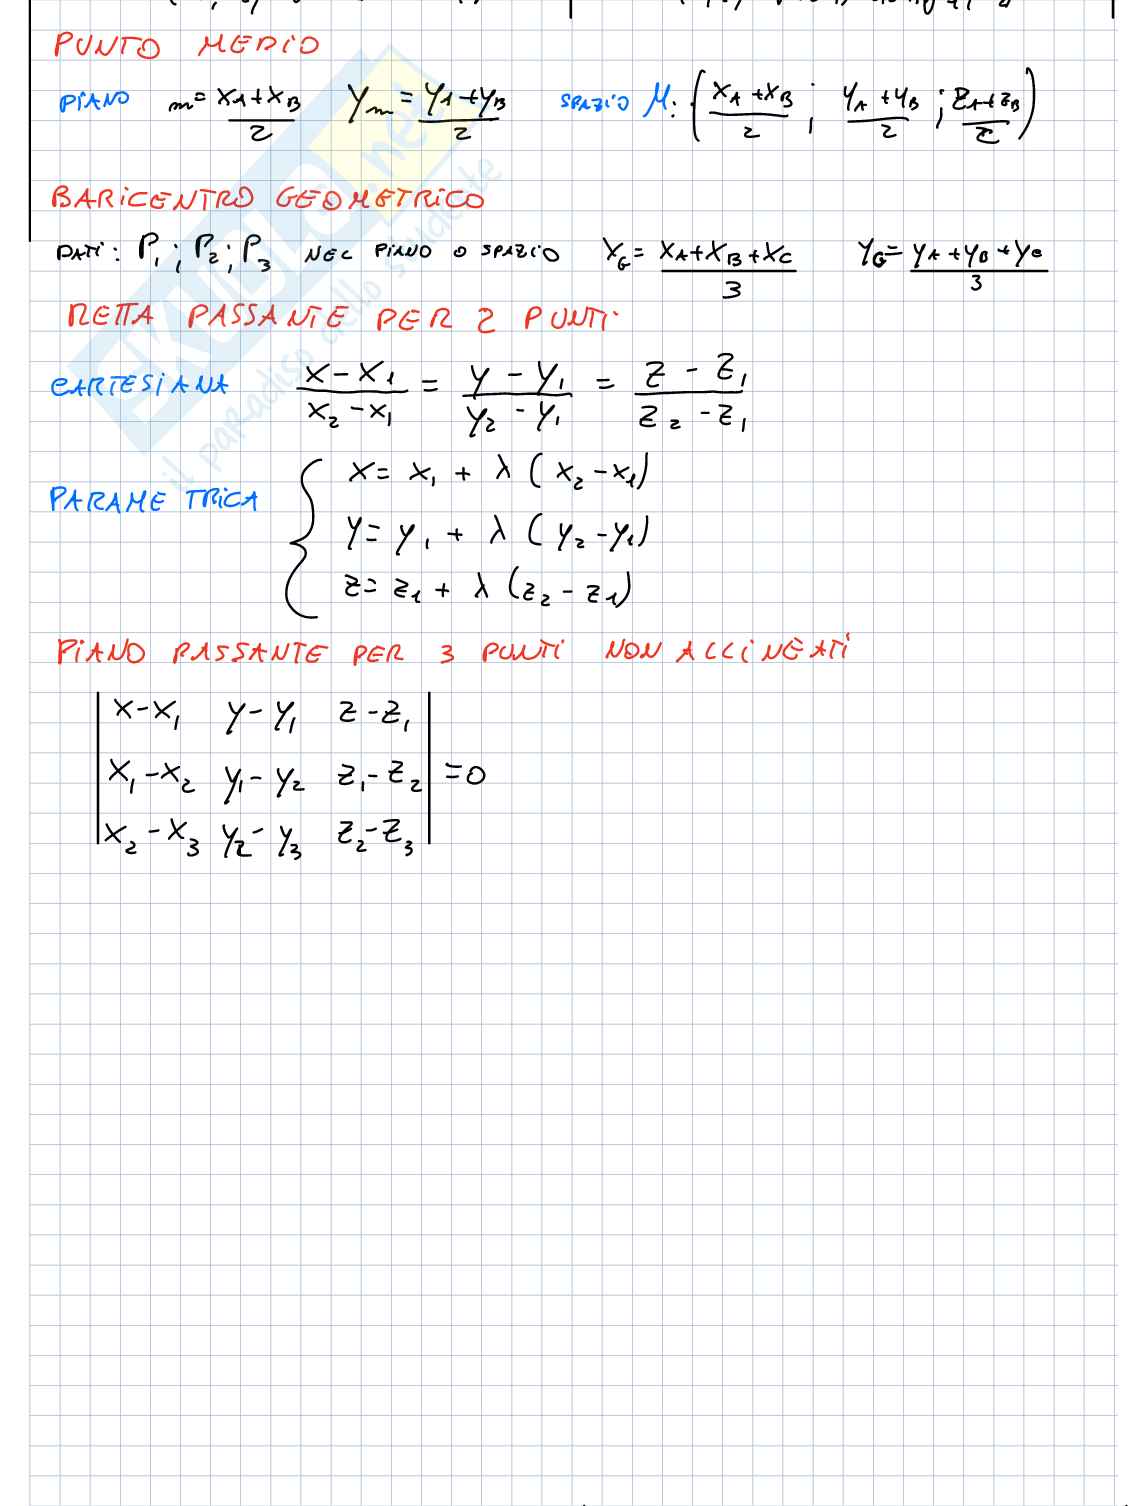 PUNTO MEDIO
PIANO m = xA+xB/2 Ym = yA+yB/2 SPAZIO M: (xA+xB/2 ; yA+yB/2 ; zA+zB/2)
BARICENTRO GEOMETRICO
DATI: P1; P2; P3 NEL PIANO O SPAZIO XG = xA+xB+xC/3 YG = yA+yB+yC/3
RETTA PASSANTE PER 2 PUNTI
CARTESIANA x-x1/x2-x1 = y-y1/y2-y1 = z-z1/z2-z1
PARAMETRICA { x = x1 + λ (x2-x1)
y = y1 + λ (y2-y1)
z = z1 + λ (z2-z1)
PIANO PASSANTE PER 3 PUNTI NON ALLINEATI
| x-x1 y-y1 z-z1 |
| x1-x2 y1-y2 z1-z2 | = 0
| x2-x3 y2-y3 z2-z3 |
il paradiso dello studente